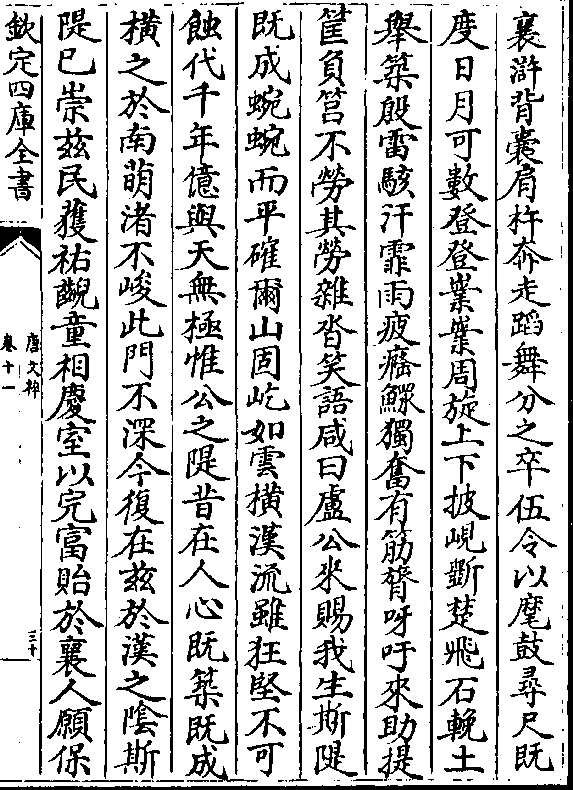 襄滸背囊肩杵奔走蹈舞分之卒伍令以麾鼓尋尺既
度日月可數登登業業周旋上下披峴斷楚飛石輓土
舉築殷雷駭汗霏雨疲癃鰥獨奮有筋膂呀吁來助提
筐負筥不勞其勞雜沓笑語咸曰盧公來賜我生斯隄
既成蜿蜿而平確爾山固屹如雲橫漢流雖狂堅不可
蝕代千年億與天無極惟公之隄昔在人心既築既成
橫之於南萌渚不峻此門不深今復在兹於漢之陰斯
隄已崇兹民獲祐齯童相慶室以完富貽於襄人願保
欽定四庫全書
唐文粹
卷十一
三十